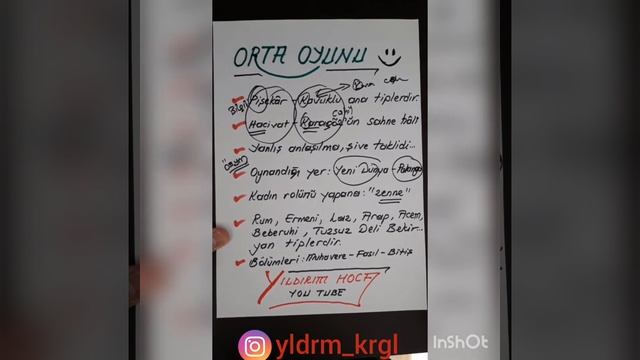 ORTA OYUNU
Pişekâr - Kavuklu ana tiplerdir.
Hacivat - Karagöz'ün sahne hâli
Yanlış anlaşılma, şive taklidi..
Oynandığı yer: Yeni Dünya - Palanga
Kadın rolünü yapana: "zenne"
Rum, Ermeni, Laz, Arap, Acem,
Beberuhi, Tuzsuz Deli Bekir...
yan tiplerdir.
Bölümleri: Muhavere - Fasıl - Bitiş
YILDIRIM HOCA
YOU TUBE
yldrm_krgl
InShOt